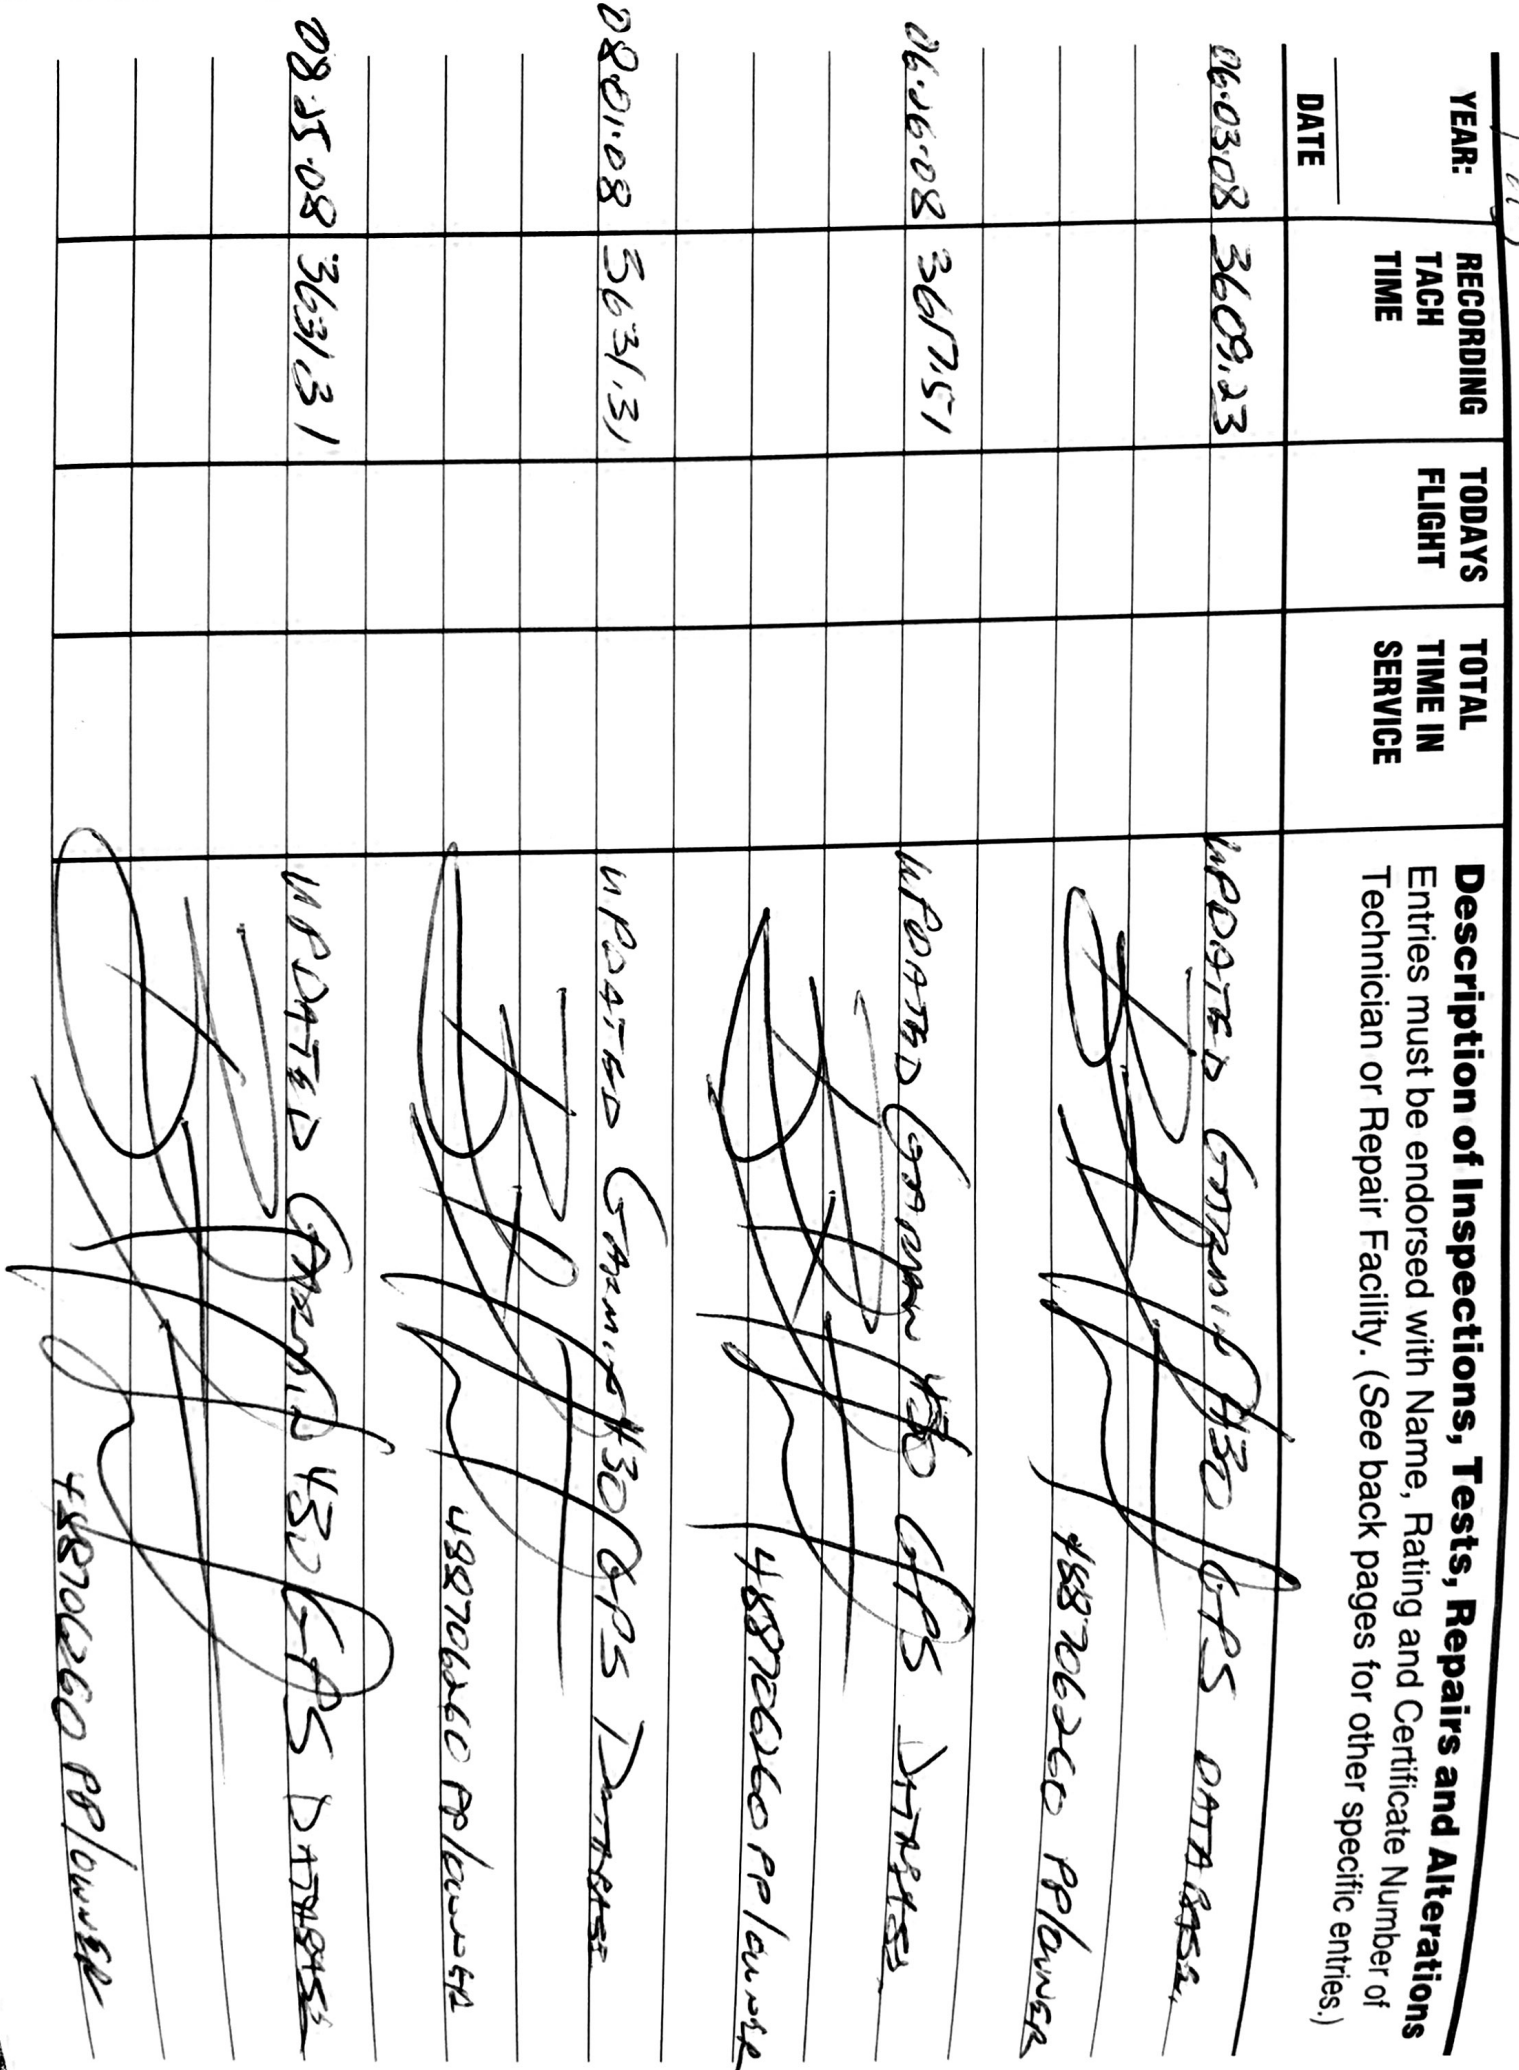 YEAR:
DATE
RECORDING
TACH
TIME
TODAYS
FLIGHT
TOTAL
TIME IN
SERVICE
Description of Inspections, Tests, Repairs and Alterations
Entries must be endorsed with Name, Rating and Certificate Number of
Technician or Repair Facility. (See back pages for other specific entries.)
06.03.08 3609.23 UPDATED GARMIN 430 GPS DATABASE
488706260 PP/OWNER
06.26.08 3617.51 UPDATED GARMIN 430 GPS DATABASE
488706260 PP/OWNER
08.01.08 3631.31 UPDATED GARMIN 430 GPS DATABASE
488706260 PP/OWNER
08.25.08 3631.31 UPDATED GARMIN 430 GPS DATABASE
488706260 PP/OWNER